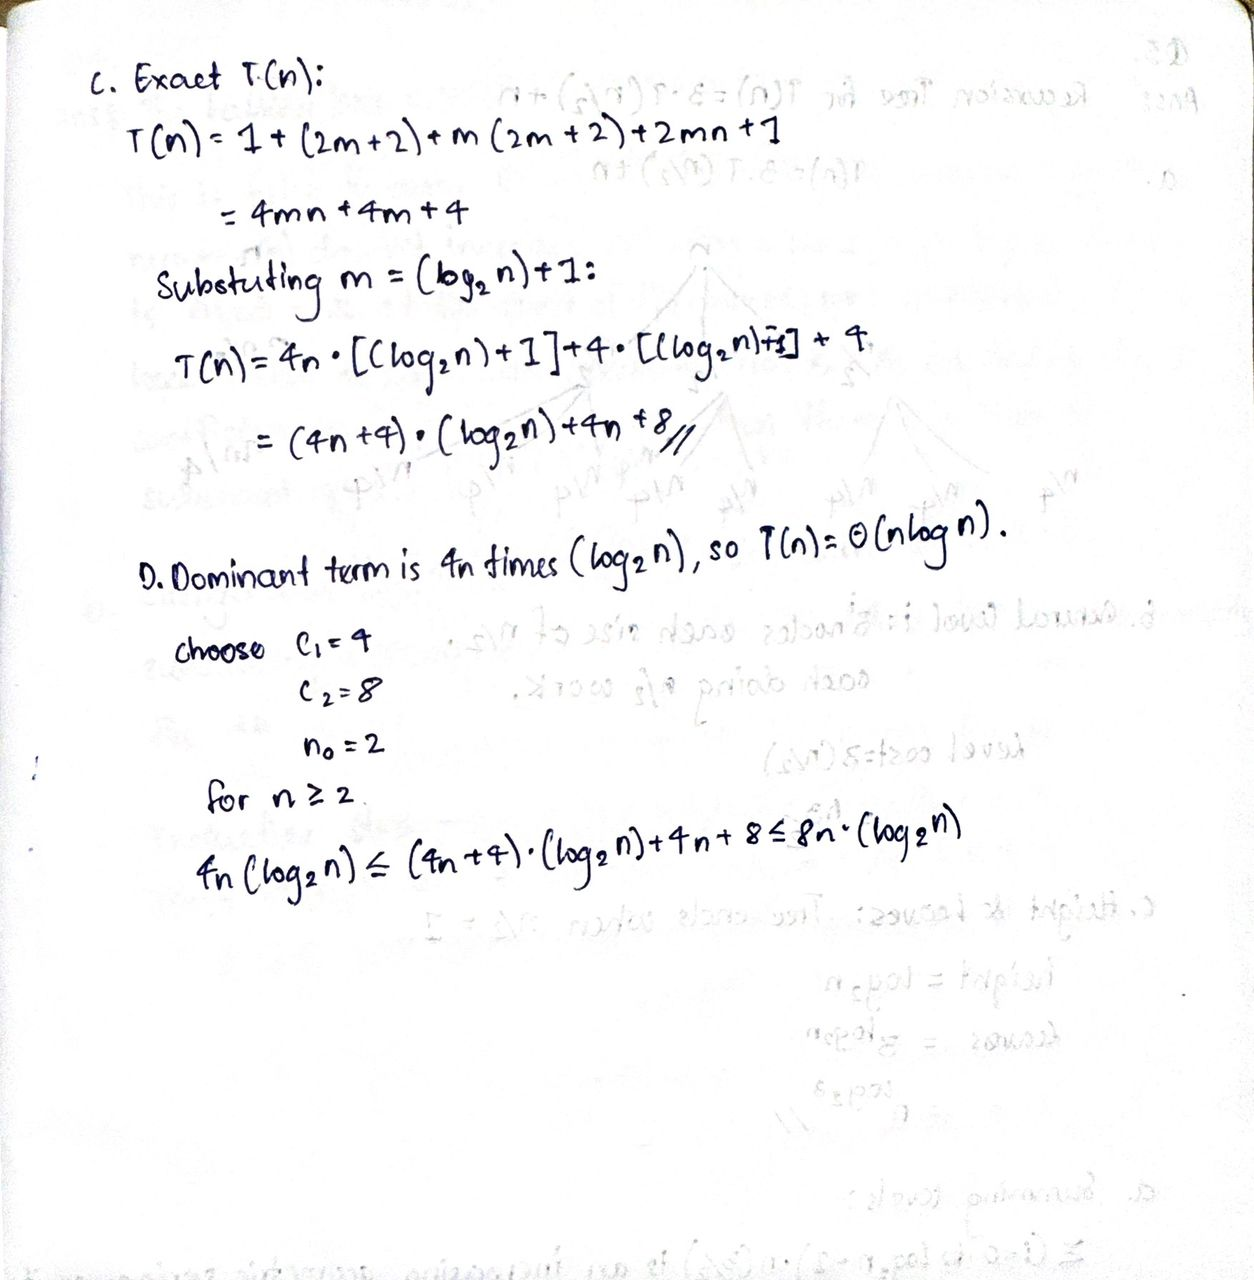 C. Exact T.(n):
T(n) = 1 + (2m+2) + m (2m + 2) + 2mn + 1
= 4mn + 4m + 4
Substuting m = (log₂ n) + 1:
T(n) = 4n • [(log₂n) + 1] + 4 • [(log₂n) + 1] + 4
= (4n + 4) • (log₂n) + 4n + 8 //
D. Dominant term is 4n times (log₂ n), so T(n) = Θ(n log n).
choose C₁ = 4
C₂ = 8
n₀ = 2
for n ≥ 2
4n (log₂ n) ≤ (4n + 4) • (log₂ n) + 4n + 8 ≤ 8n • (log₂ n)